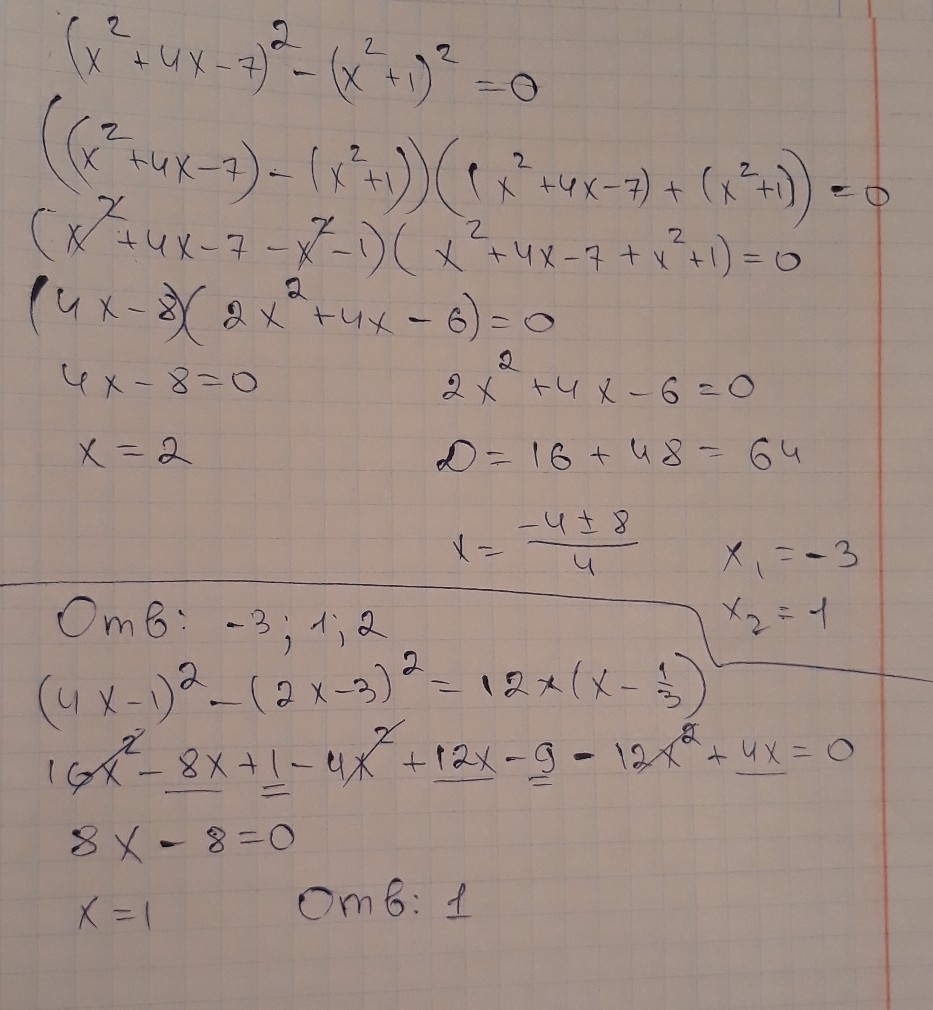 (x²+4x-7)²-(x²+1)²=0
((x²+4x-7)-(x²+1))((x²+4x-7)+(x²+1))=0
(x²+4x-7-x²-1)(x²+4x-7+x²+1)=0
(4x-8)(2x²+4x-6)=0
4x-8=0 2x²+4x-6=0
x=2 D=16+48=64
x=(-4±8)/4 x₁=-3
x₂=1
Отв: -3; 1; 2
(4x-1)²-(2x-3)²=12x(x-1/3)
16x²-8x+1-4x²+12x-9-12x²+4x=0
8x-8=0
x=1 Отв: 1